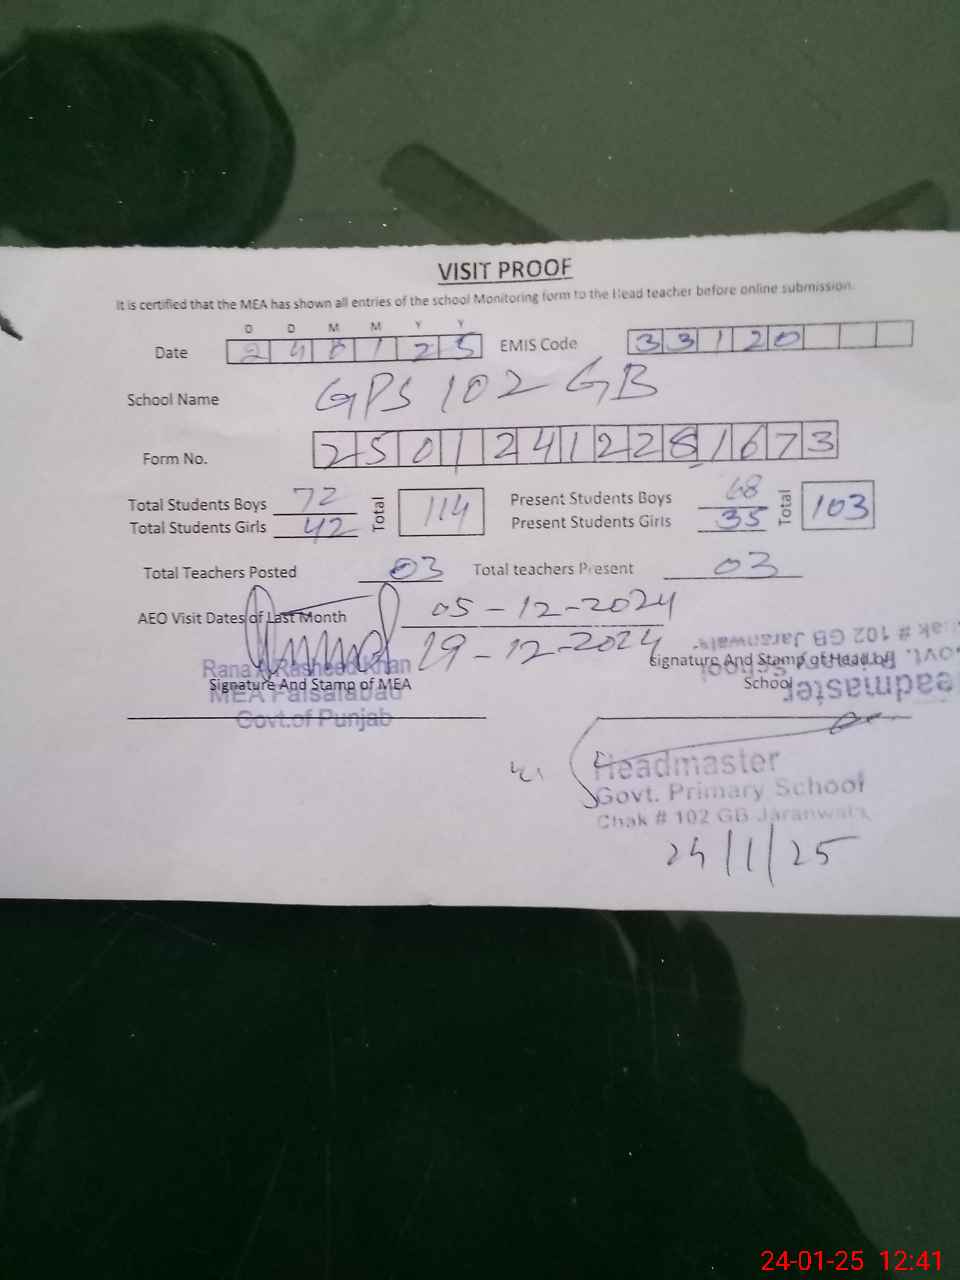 VISIT PROOF
It is certified that the MEA has shown all entries of the school Monitoring form to the Head teacher before online submission.
D D M M Y Y
Date 240125 EMIS Code 33120
School Name GPS 102 GB
Form No. 25012412281673
Total Students Boys 72 Total 114 Present Students Boys 68 Total 103
Total Students Girls 42 Present Students Girls 35
Total Teachers Posted 03 Total teachers Present 03
AEO Visit Dates of Last Month 05-12-2024
19-12-2024
Rana A Rasheed Khan
Signature And Stamp of MEA
MEA Faisalabad
Govt.of Punjab
Signature And Stamp of Head of
School
Headmaster
Govt. Primary School
Chak # 102 GB Jaranwala
Headmaster
Govt. Primary School
Chak # 102 GB Jaranwala
24/1/25
24-01-25 12:41